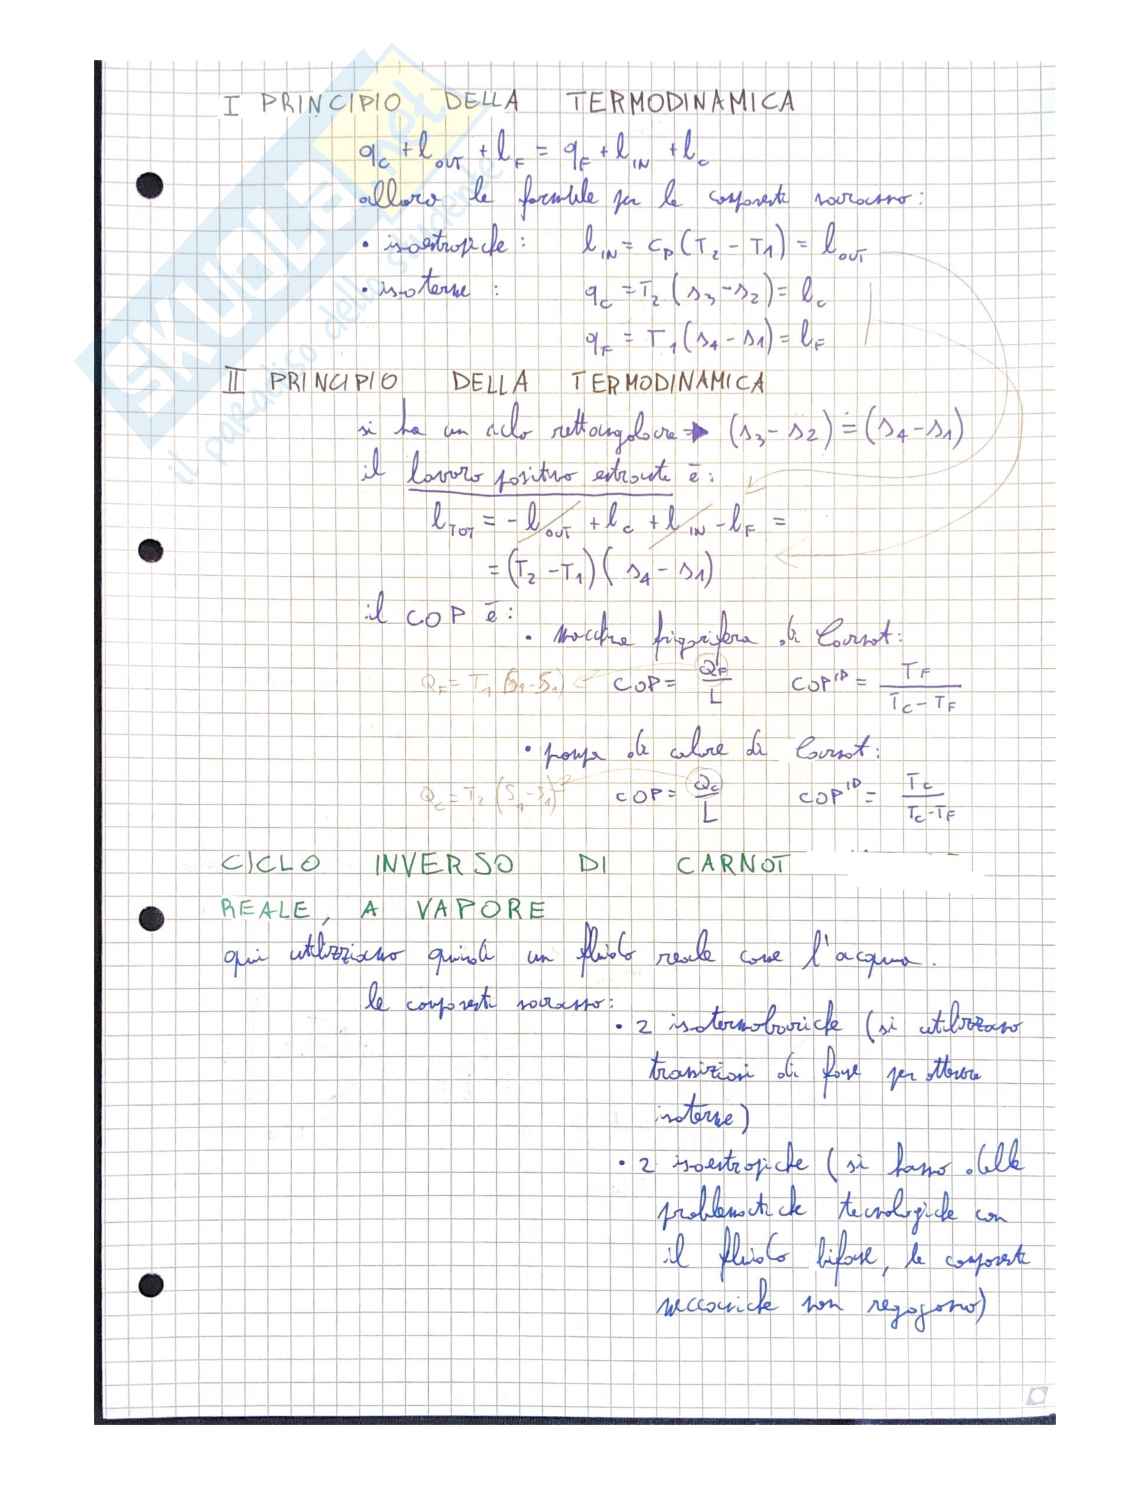 I PRINCIPIO DELLA TERMODINAMICA
q_C + l_OUT + l_F = q_F + l_IN + l_C
allora le formule per le componenti saranno:
• isoentropiche: l_IN = c_P (T_2 - T_1) = l_OUT
• isoterme: q_C = T_2 (s_3 - s_2) = l_C
q_F = T_1 (s_4 - s_1) = l_F
II PRINCIPIO DELLA TERMODINAMICA
si ha un ciclo rettangolare → (s_3 - s_2) = (s_4 - s_1)
il lavoro positivo entrante è:
l_TOT = - l_OUT + l_C + l_IN - l_F =
= (T_2 - T_1) (s_4 - s_1)
il COP è:
• macchina frigorifera di Carnot:
Q_F = T_1 (S_4 - S_1) COP = Q_F / L COP^ID = T_F / (T_C - T_F)
• pompa di calore di Carnot:
Q_C = T_2 (S_4 - S_1) COP = Q_C / L COP^ID = T_C / (T_C - T_F)
CICLO INVERSO DI CARNOT
REALE, A VAPORE
qui utilizziamo quindi un fluido reale come l'acqua.
le componenti saranno:
• 2 isotermobariche (si utilizzano
transizioni di fase per ottenere
isoterme)
• 2 isoentropiche (si hanno delle
problematiche tecnologiche con
il fluido bifase, le componenti
meccaniche non reggono)
SKUOLA.net
il paradiso dello studente